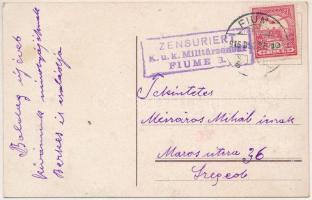 ZENSURIERT
K. u. k. Militärzensur
FIUME 1.
FIUME
Boldog új évet
kívánunk mindnyájuknak
Berkes és családja
Tekintetes
Mészáros Mihály úrnak
Maros utcza 36
Szeged